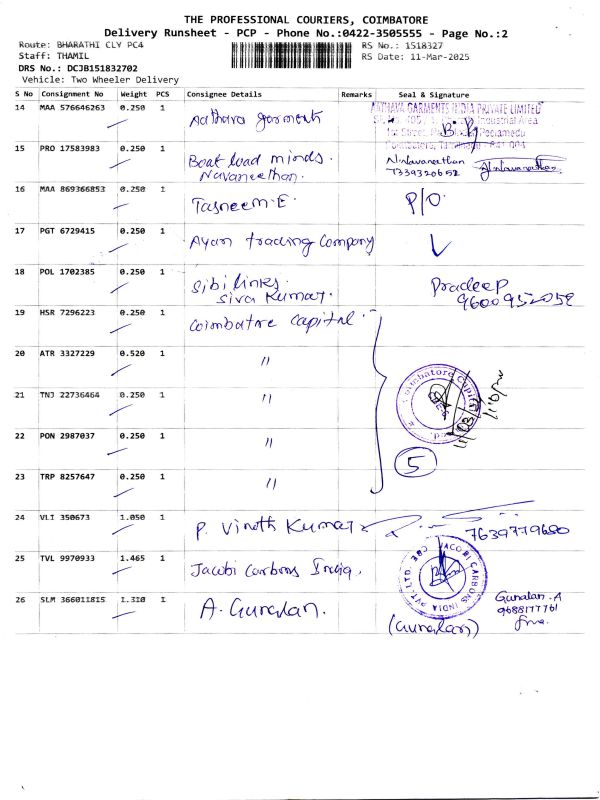 THE PROFESSIONAL COURIERS, COIMBATORE
Delivery Runsheet - PCP - Phone No.:0422-3505555 - Page No.:2
Route: BHARATHI CLY PC4 RS No.: 1518327
Staff: THAMIL RS Date: 11-Mar-2025
DRS No.: DCJB151832702
Vehicle: Two Wheeler Delivery
S No Consignment No Weight PCS Consignee Details Remarks Seal & Signature
14 MAA 576646263 0.250 1 Aathava garments
GARMENTS INDIA PRIVATE LIMITED
Industrial Area
1st Street, Peelamedu
15 PRO 17583983 0.250 1 Boat load minds.
Navaneethan.
Navaneethan
7339320652
16 MAA 869366853 0.250 1 Tasneem.E. P/O
17 PGT 6729415 0.250 1 Ayan trading Company
18 POL 1702385 0.250 1 Sibi links.
Siva Kumar.
Pradeep
9600952052
19 HSR 7296223 0.250 1 Coimbatore Capital.
20 ATR 3327229 0.520 1 "
21 TNJ 22736464 0.250 1 "
Coimbatore Capital
22 PON 2987037 0.250 1 "
5
23 TRP 8257647 0.250 1 "
24 VLI 350673 1.050 1 P. Vinoth Kumar
7639779680
25 TVL 9970933 1.465 1 Jacobi Carbons India.
JACOBI CARBONS INDIA PVT. LTD.
26 SLM 366011815 1.310 1 A. Gunalan.
(Gunalan)
Gunalan.A
9688177761